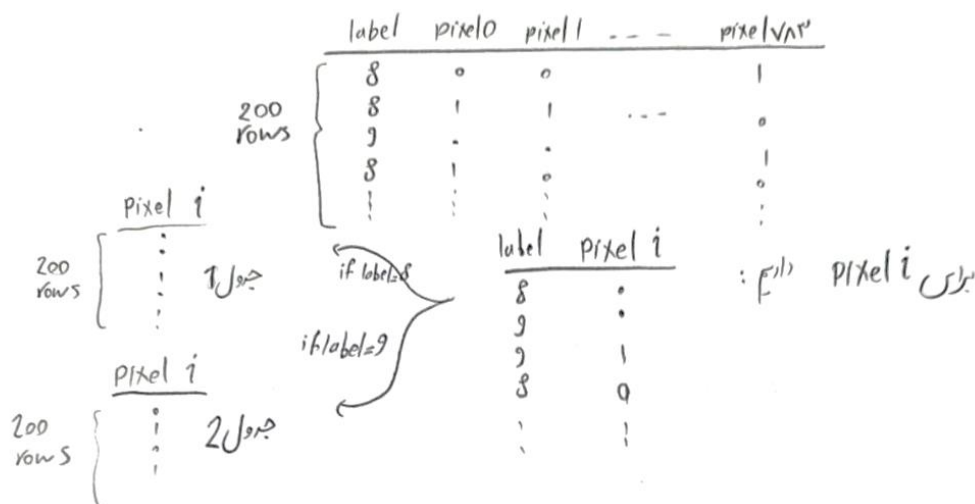 label pixel0 pixel1 --- pixel۷۸۳
200 rows
8 0 0 1
8 1 1 --- 0
9 . . 1
8 1 0 0
برای pixel i داریم :
label pixel i
8 .
9 .
9 1
8 0
if label=8
if label=9
pixel i
200 rows
جدول 1
pixel i
200 rows
جدول 2